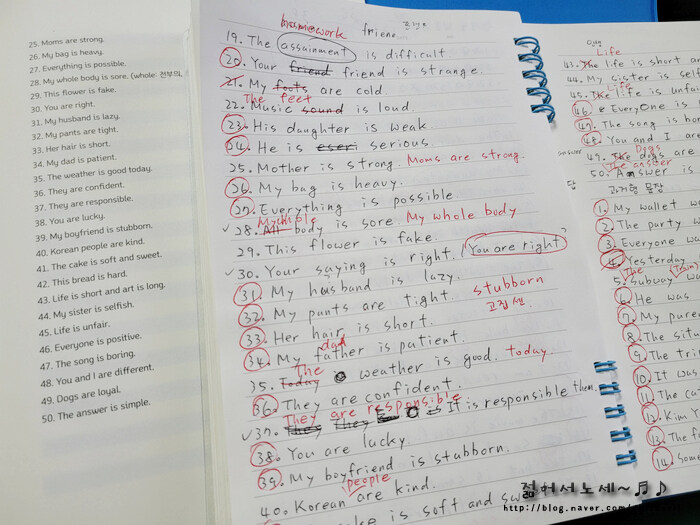 25. Moms are strong.
26. My bag is heavy.
27. Everything is possible.
28. My whole body is sore. (whole: 전부의,
29. This flower is fake.
30. You are right.
31. My husband is lazy.
32. My pants are tight.
33. Her hair is short.
34. My dad is patient.
35. The weather is good today.
36. They are confident.
37. They are responsible.
38. You are lucky.
39. My boyfriend is stubborn.
40. Korean people are kind.
41. The cake is soft and sweet.
42. This bread is hard.
43. Life is short and art is long.
44. My sister is selfish.
45. Life is unfair.
46. Everyone is positive.
47. The song is boring.
48. You and I are different.
49. Dogs are loyal.
50. The answer is simple.
homework friend
19. The assainment is difficult
20. Your friend friend is strange.
21. My foots are cold.
The feet
22. Music sound is loud.
23. His daughter is weak.
24. He is serious.
25. Mother is strong. Moms are strong.
26. My bag is heavy.
27. Everything is possible
My whole
28. All body is sore. My whole body
29. This flower is fake.
30. Your saying is right. You are right
31. My husband is lazy.
32. My pants are tight. stubborn
고집 센
33. Her hair is short.
dad
34. My father is patient.
The
35. Today weather is good. today
36. They are confident.
They are responsible
37. They They is It is responsible them.
38. You are lucky.
39. My boyfriend is stubborn.
people
40. Korean are kind.
cake is soft and sw
인생
Life
43. The life is short ar
44. My sister is self
Life
45. The life is unfai
46. Everyone is
47. The song is bor
48. You and I are
Dogs
49. The dogs are
The answer
50. Answer is
답
과거형 문장
1. My wallet wa
2. The party w
3. Everyone wa
4. Yesterday
The (Train)
5. Subway wa
6. He was
7. My pare
8. The situ
9. The tri
10. It was
11. The ca
12. Kim
13. The fo
14. Some
젊어서노세~♬♪
http://blog.naver.com/